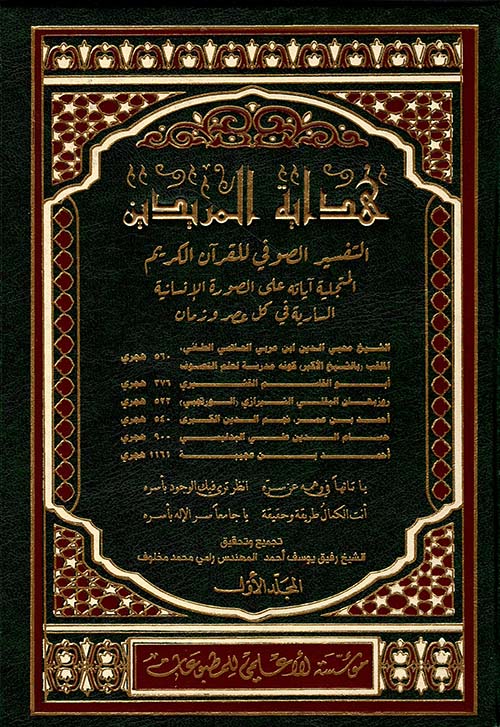 هداية المريدين
التفسير الصوفي للقرآن الكريم
المتجلية آياته على الصورة الإنسانية
السارية في كل عصر وزمان
الشيخ محيي الدين ابن عربي الحاتمي الطائي،
الملقب (بالشيخ الأكبر) كونه مدرسة لعلم التصوف ٥٦٠ هجري
أبو القاسم القشيري ٣٧٦ هجري
روزبهان البقلي الشيرازي (الورتجبي) ٥٢٢ هجري
أحمد بن عمر، نجم الدين الكبرى ٥٤٠ هجري
حسام الدين علي البدليسي ٩٠٠ هجري
أحمد بن عجيبة ١١٦١ هجري
يا تائهاً في مهمه عن سره انظر ترى فيك الوجود بأسره
أنت الكمال طريقة وحقيقة يا جامعاً سر الإله بأسره
تجميع وتحقيق
الشيخ رفيق يوسف أحمد المهندس رامي محمد مخلوف
المجلد الأول
مؤسسة الأعلمي للمطبوعات